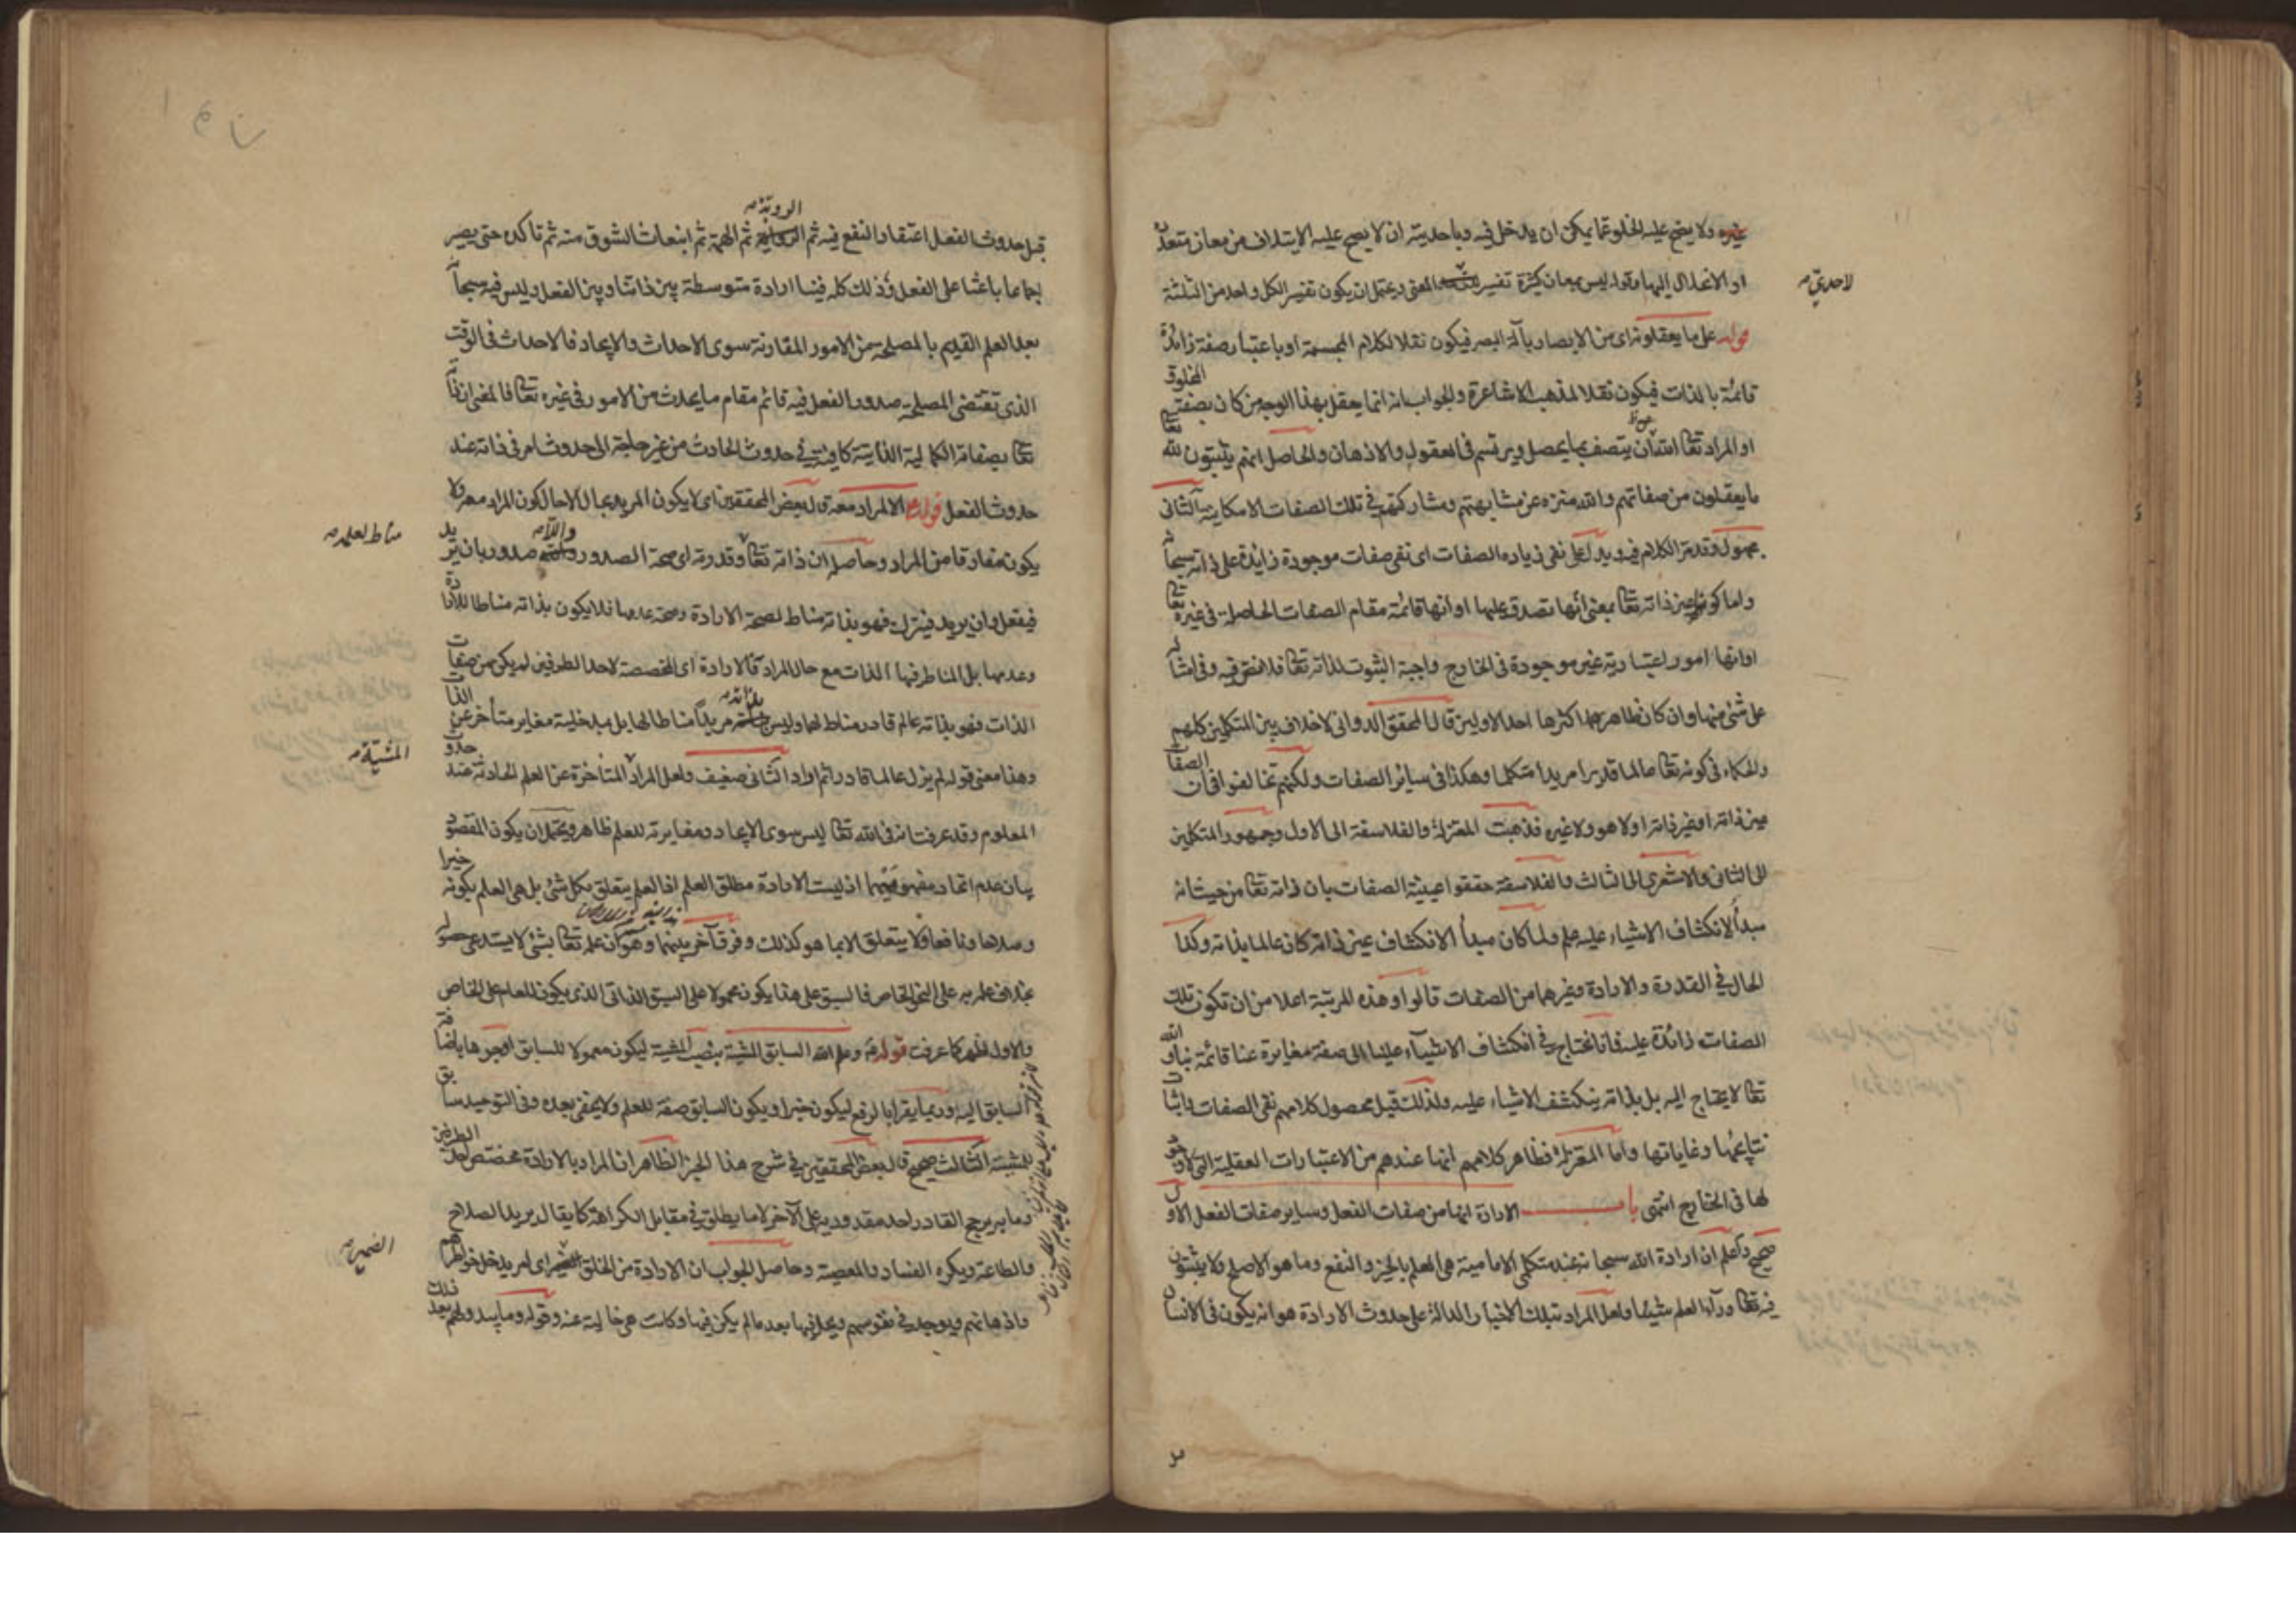 غيره ولا يصح عليه الخلو عما يمكن ان يدخل فيه وباحديته ان لا يصح عليه الايتلاف من معان متعددة
او الانحلال اليها وقوله ليس بمعان كثيرة تفسير لاحدي المعنى ويحتمل ان يكون تفسير الكل واحد من الثلثة
قوله على ما يعقلونه اى من الابصار بآلة البصر فيكون نقلا لكلام المجسمة او باعتبار صفة زائدة
قائمة بالذات فيكون نقلا لمذهب الاشاعرة والجواب انه انما يعقل بهذا الوجه من كان بصفة المخلوق
او المراد تعالى الله عن ان يتصف بما يحصل ويرتسم فى العقول والاذهان والحاصل انهم يثبتون لله تعالى
ما يعقلون من صفاتهم والله منزه عن مشابهتهم ومشاركتهم فى تلك الصفات الامكانية الثانى
مجهول وقد مر الكلام فيه ويدل على نفى زيادة الصفات اى نفى صفات موجودة زايدة على ذاته سبحانه
واما كونها عين ذاته تعالى بمعنى أنها تصدق عليها او أنها قائمة مقام الصفات الحاصلة فى غيره تعالى
او انها امور اعتبارية غير موجودة فى الخارج واجبة الثبوت لذاته تعالى فلا نص فيه وفى امثاله
على شئ منها وان كان ظاهر اكثرها احد الاولين قال المحقق الدوانى لا خلاف بين المتكلمين كلهم
والحكماء فى كونه تعالى عالما قديرا مريدا متكلما وهكذا فى سائر الصفات ولكنهم تخالفوا فى ان الصفات
عين ذاته او غير ذاته او لا هو ولا غيره فذهبت المعتزلة والفلاسفة الى الاول وجمهور المتكلمين
الى الثانى والاشعرى الى الثالث والفلاسفة حققوا عينية الصفات بان ذاته تعالى من حيث انه
مبدأ لانكشاف الاشياء عليه علم ولما كان مبدأ الانكشاف عين ذاته كان عالما بذاته وكذا
الحال فى القدرة والارادة وغيرهما من الصفات قالوا وهذه المرتبة اعلا من ان تكون تلك
الصفات زائدة عليه فانا نحتاج فى انكشاف الاشياء علينا الى صفة مغايرة عنا قائمة بنا والله
تعالى لا يحتاج اليه بل بذاته ينكشف الاشياء عليه ولذلك قيل محصول كلامهم نفى الصفات واثبات
نتايجها وغاياتها واما المعتزلة فظاهر كلامهم انها عندهم من الاعتبارات العقلية التى لا وجود
لها فى الخارج انتهى باب الارادة انها من صفات الفعل وساير صفات الفعل الاول
صحيح واعلم ان ارادة الله سبحانه عند متكلمى الامامية هى العلم بالخير والنفع وما هو الاصلح ولا يثبتون
فيه تعالى وراء العلم شيئا ولعل المراد بتلك الاخبار الدالة على حدوث الارادة هو انه يكون فى الانسان
لاحدي
قبل حدوث الفعل اعتقاد النفع فيه ثم الروية ثم الهمة ثم انبعاث الشوق منه ثم تاكده حتى يصير
اجماعا باعثا على الفعل وذلك كله فينا ارادة متوسطة بين ذاتنا وبين الفعل وليس فيه سبحانه
بعد العلم القديم بالمصلحة من الامور المقارنة سوى الاحداث والايجاد فالاحداث فى الوقت
الذى تقتضى المصلحة صدور الفعل فيه قائم مقام ما يحدث من الامور فى غيره تعالى فالمعنى ان ذاته
تعالى بصفاته الكمالية الذاتية كافية فى حدوث الحادث من غير حاجة الى حدوث امر فى ذاته عند
حدوث الفعل قوله الا لمراد معه قال بعض المحققين اى لا يكون المريد بحال الا حال كون المراد معه ولا
يكون مفارقا من المراد وحاصله ان ذاته تعالى وقدرته اى صحة الصدور واللاصدور بان يريد
فيفعل وان يريد فيترك فهو بذاته مناط لصحة الارادة وصحة عدمها فلا يكون بذاته مناطا للارادة
وعدمها بل المناط فيها الذات مع حال المراد فالارادة اى المخصصة لاحد الطرفين لم يكن من صفات
الذات فهو بذاته عالم قادر مناط لهما وليس بذاته مريدا مناطا لها بل بمدخلية مغاير متأخر عن الذات
وهذا معنى قوله لم يزل عالما قادرا ثم اراد الثانى ضعيف ولعل المراد المتأخرة عن العلم الحادثة عند حدوث
المعلوم وقد عرفت انه فى الله تعالى ليس سوى الايجاد ومغايرته للعلم ظاهر ويحتمل ان يكون المقصود
بيان عدم اتحاد مفهوميهما اذ ليست الارادة مطلق العلم اذ العلم يتعلق بكل شئ بل هى العلم بكونه خيرا
وصلاحا ونافعا ولا يتعلق الا بما هو كذلك وفرق آخر بينهما وهو ان علمه تعالى بشئ لا يستدعى حصوله
بخلاف علمه به على النحو الخاص فالسبق على هذا يكون محمولا على السبق الذاتى الذى يكون للعام على الخاص
والاول اظهر كما عرفت قوله وعلم الله السابق المشية بنصب المشية ليكون معمولا للسابق او بجرها باضافة
السابق اليه وربما يقرا بالرفع ليكون خبرا ويكون السابق صفة للعلم ولا يخفى بعده وفى التوحيد سابق
للمشية الثالث صحيح قال بعض المحققين فى شرح هذا الخبر الظاهر ان المراد بالارادة مخصص احد الطرفين
وما به يرجح القادر احد مقدوريه على الآخر لا ما يطلق فى مقابل الكراهة كما يقال يريد الصلاح
والطاعة ويكره الفساد والمعصية وحاصل الجواب ان الارادة من الخلق الضمير اى امر يدخل خواطرهم
واذهانهم ويوجد فى نفوسهم ويحل فيها بعد ما لم يكن فيها وكانت هى خالية عنه وقوله وما يبدو لهم بعد ذلك
مناط لعلمه
المشية
الضمير